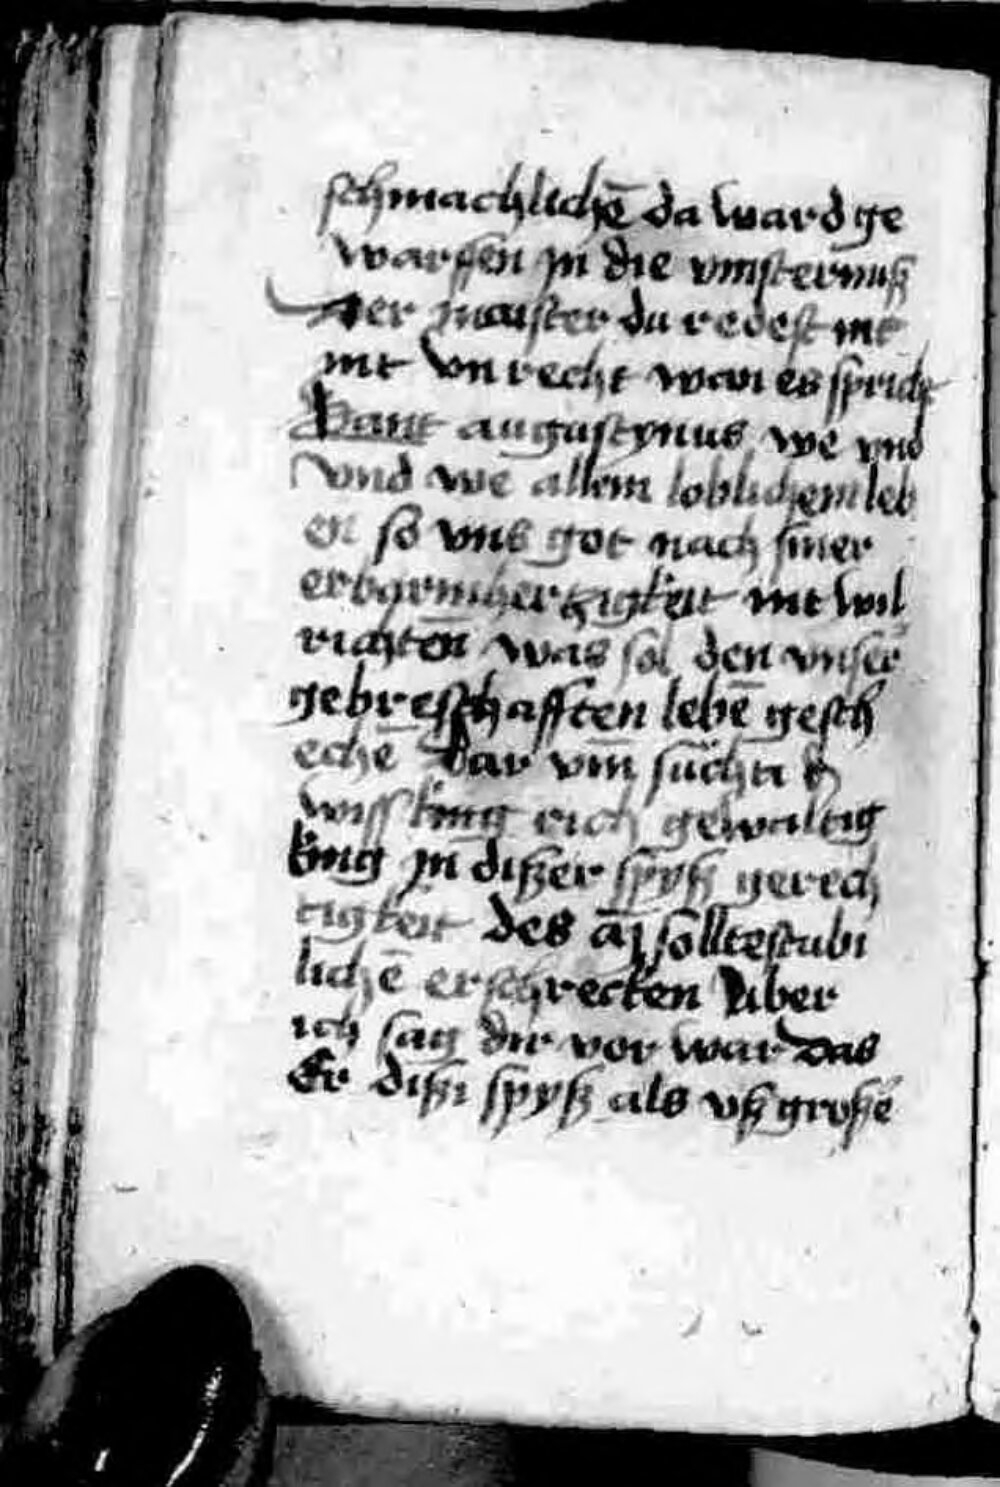 schmachlichē da ward ge
warffen jn die vinsternuß
Der maister du redest nit
nit vnrecht wan es spricht
Sant augustynus we vnd
vnd we allem loblichem leb
en so vns got nach siner
erbarmhertzigkeit nit wil
richten was sol den vnser
gebresthafften lebē gesch
echē Dar vm̄
wiss king rich gewaltig
king jn dißer spyß gerech
tigkeit des solltestu bi
lichē erschrecken Aber
ich sag dir vor war das
Er dißi spyß als vß großē